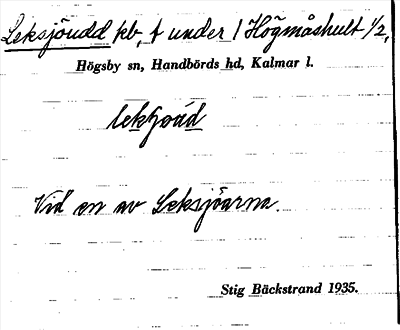 Leksjöudd pb, t under 1 Högmåshult 1/2,
Högsby sn, Handbörds hd, Kalmar l.
Vid en av Leksjöarna.
Stig Bäckstrand 1935.